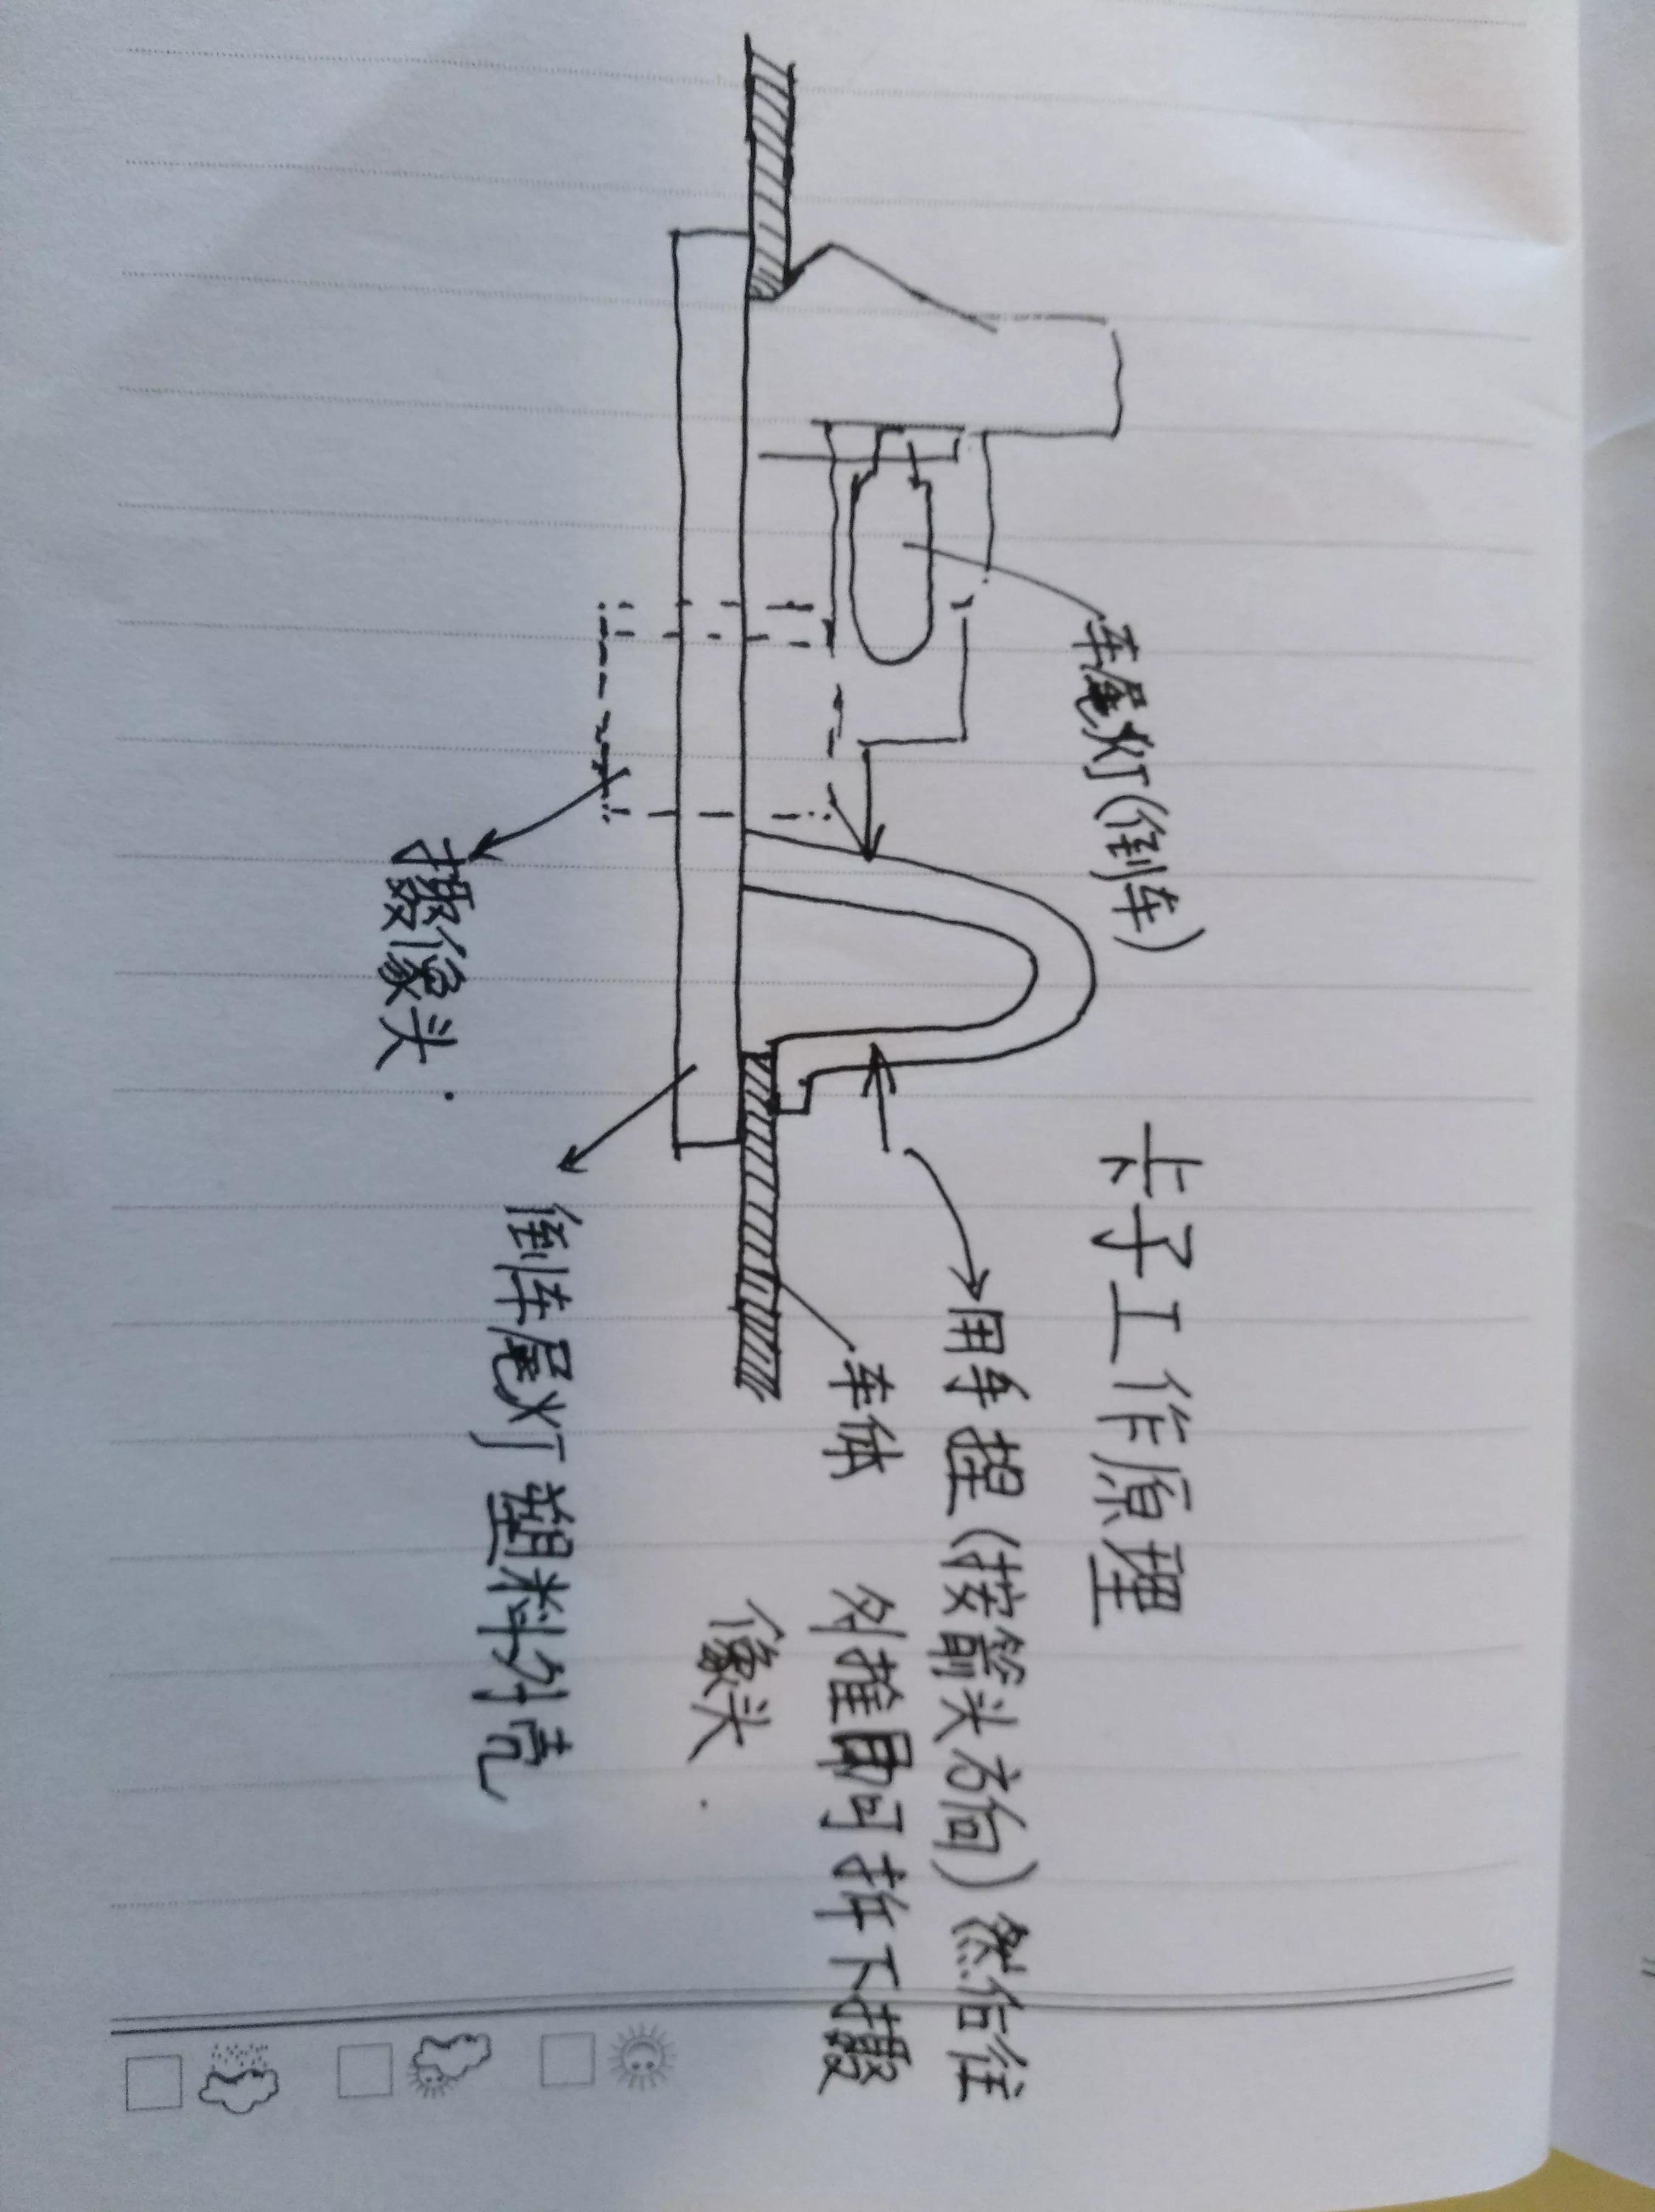 卡子工作原理
车尾灯(倒车)
用手捏(按箭头方向)然后往
外推即可拆下摄
像头.
车体
摄像头.
倒车尾灯塑料外壳